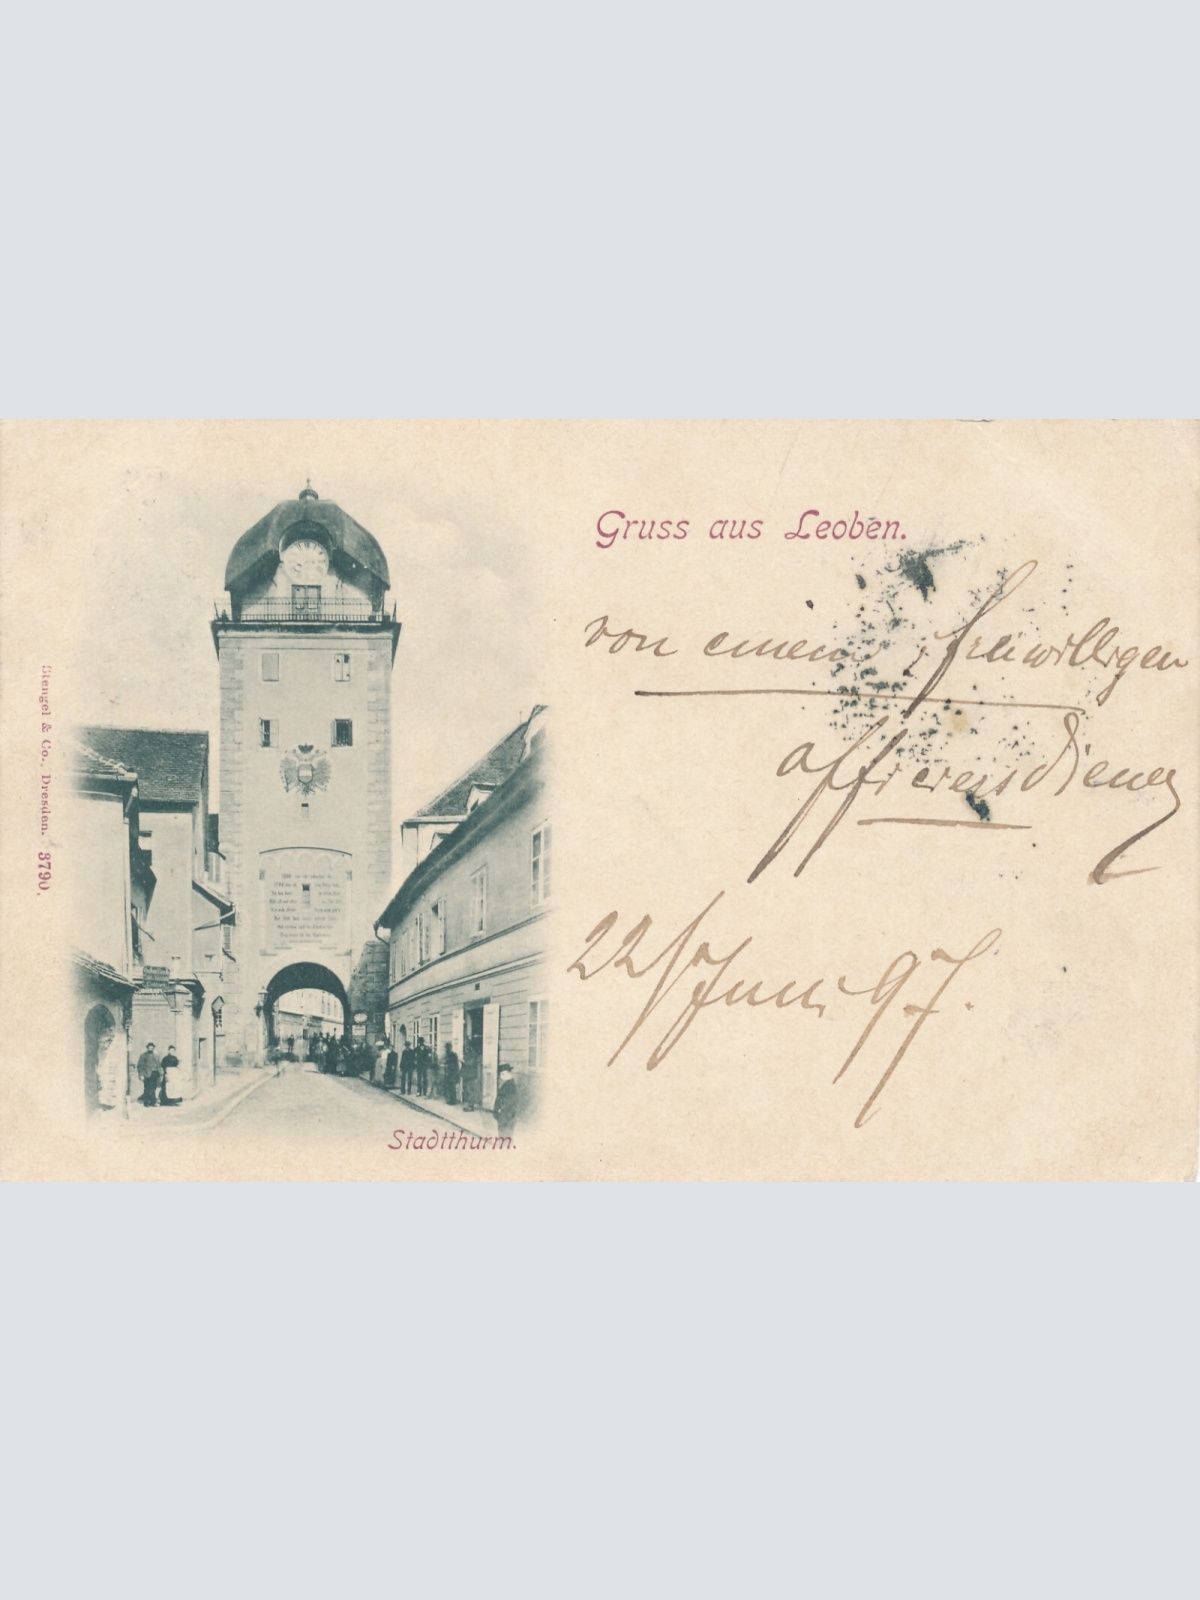 Gruss aus Leoben.
von einem freiwilligen
offiziersdiener
22/Juni 97.
Stadtthurm.
Stengel & Co., Dresden. 3790.